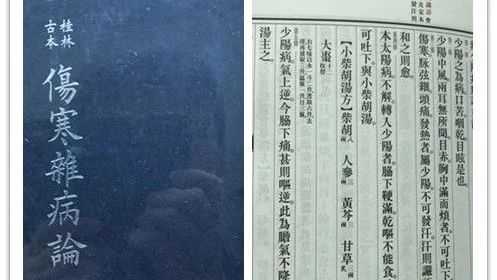 桂林
古本
傷寒雜病論
少陽之為病口苦咽乾目眩是也。
少陽中風兩耳無所聞目赤胸中滿而煩者不可吐下
傷寒脉弦細頭痛發熱者屬少陽不可發汗汗則讝
和之則愈
本太陽病不解轉入少陽者脅下鞕滿乾嘔不能食
可吐下與小柴胡湯。
【小柴胡湯方】柴胡八兩 人參三兩 黃芩三兩 甘草三兩
大棗
少陽病氣上逆今脅下痛甚則嘔逆此為膽氣不降
湯主之。